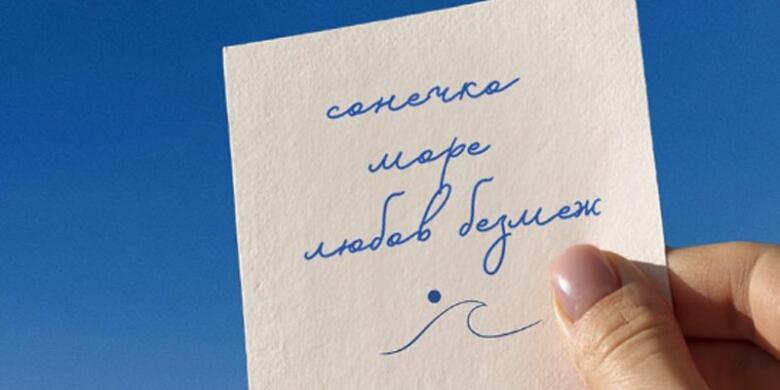 сонечко
море
любов безмеж